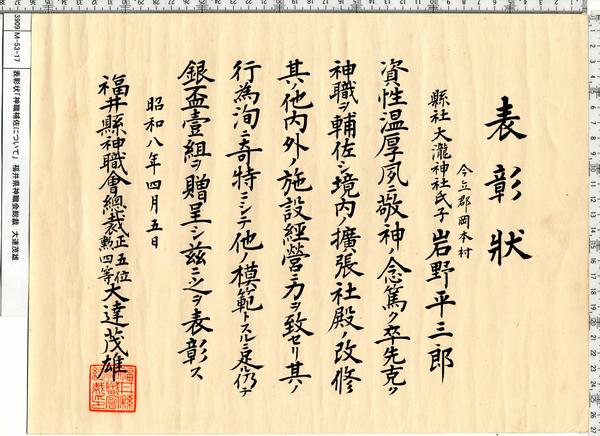 表彰状
今立郡岡本村
縣社大瀧神社氏子 岩野平三郎
資性温厚夙ニ敬神ノ念篤ク卒先克ク
神職ヲ輔佐シ境内ノ擴張社殿ノ改修
其ノ他内外ノ施設經營ニ力ヲ致セリ其ノ
行為洵ニ奇特ニシテ他ノ模範トスルニ足ル仍テ
銀盃壹組ヲ贈呈シ茲ニ之ヲ表彰ス
昭和八年四月五日
福井縣神職會總裁正五位勲四等大達茂雄
3909 M-53-17 表彰状「神職補佐について」 福井県神職会総裁 大達茂雄